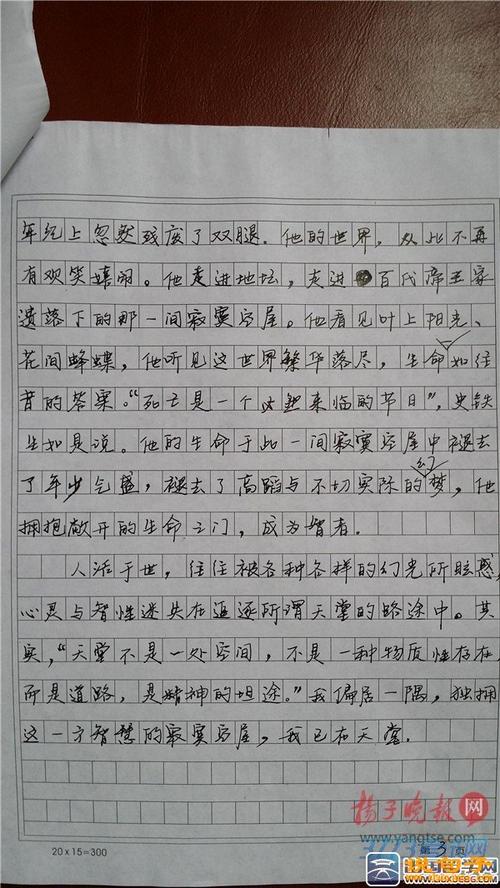 年纪上忽然残废了双腿。他的世界，从此不再
有欢笑嬉闹。他走进地坛，走进百代帝王家
遗落下的那一间寂寞空屋。他看见叶上阳光、
花间蜂蝶，他听见这世界繁华落尽，生命如往
昔的答案。“死亡是一个必然来临的节日”，史铁
生如是说。他的生命于此一间寂寞空屋中褪去
了年少气盛，褪去了高蹈与不切实际的幻梦，他
拥抱敞开的生命之门，成为智者。
人活于世，往往被各种各样的幻光所眩惑，
心灵与智性迷失在追逐所谓天堂的路途中。其
实，“天堂不是一处空间，不是一种物质性存在
而是道路，是精神的坦途。”我偏居一隅，独拥
这一方智慧的寂寞空屋，我已在天堂。
扬子晚报网
www.yangtse.com
20×15=300
第 3 页